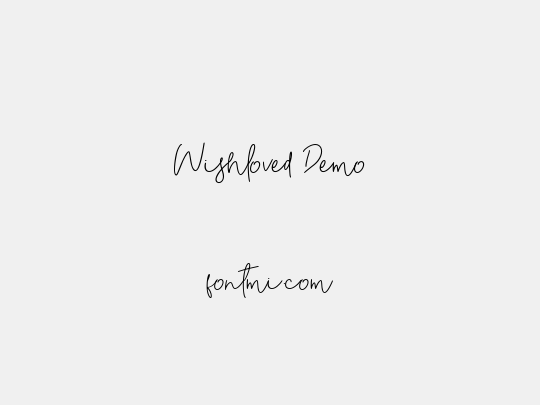 Wishloved Demo
fontmi.com